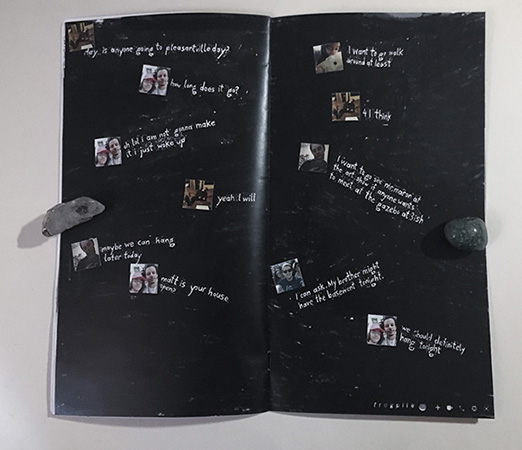 hey, is anyone going to pleasantville day?
how long does it go?
uh lol i am not gonna make
it i just woke up
yeah I will
maybe we can hang
later today
matt is your house
open?
I want to go walk
around at least
4 I think
I want to go see mcmacon at
the art show if anyone wants
to meet at the gazebo at 3ish
I can ask. My brother might
have the basement tonight.
we should definitely
hang tonight